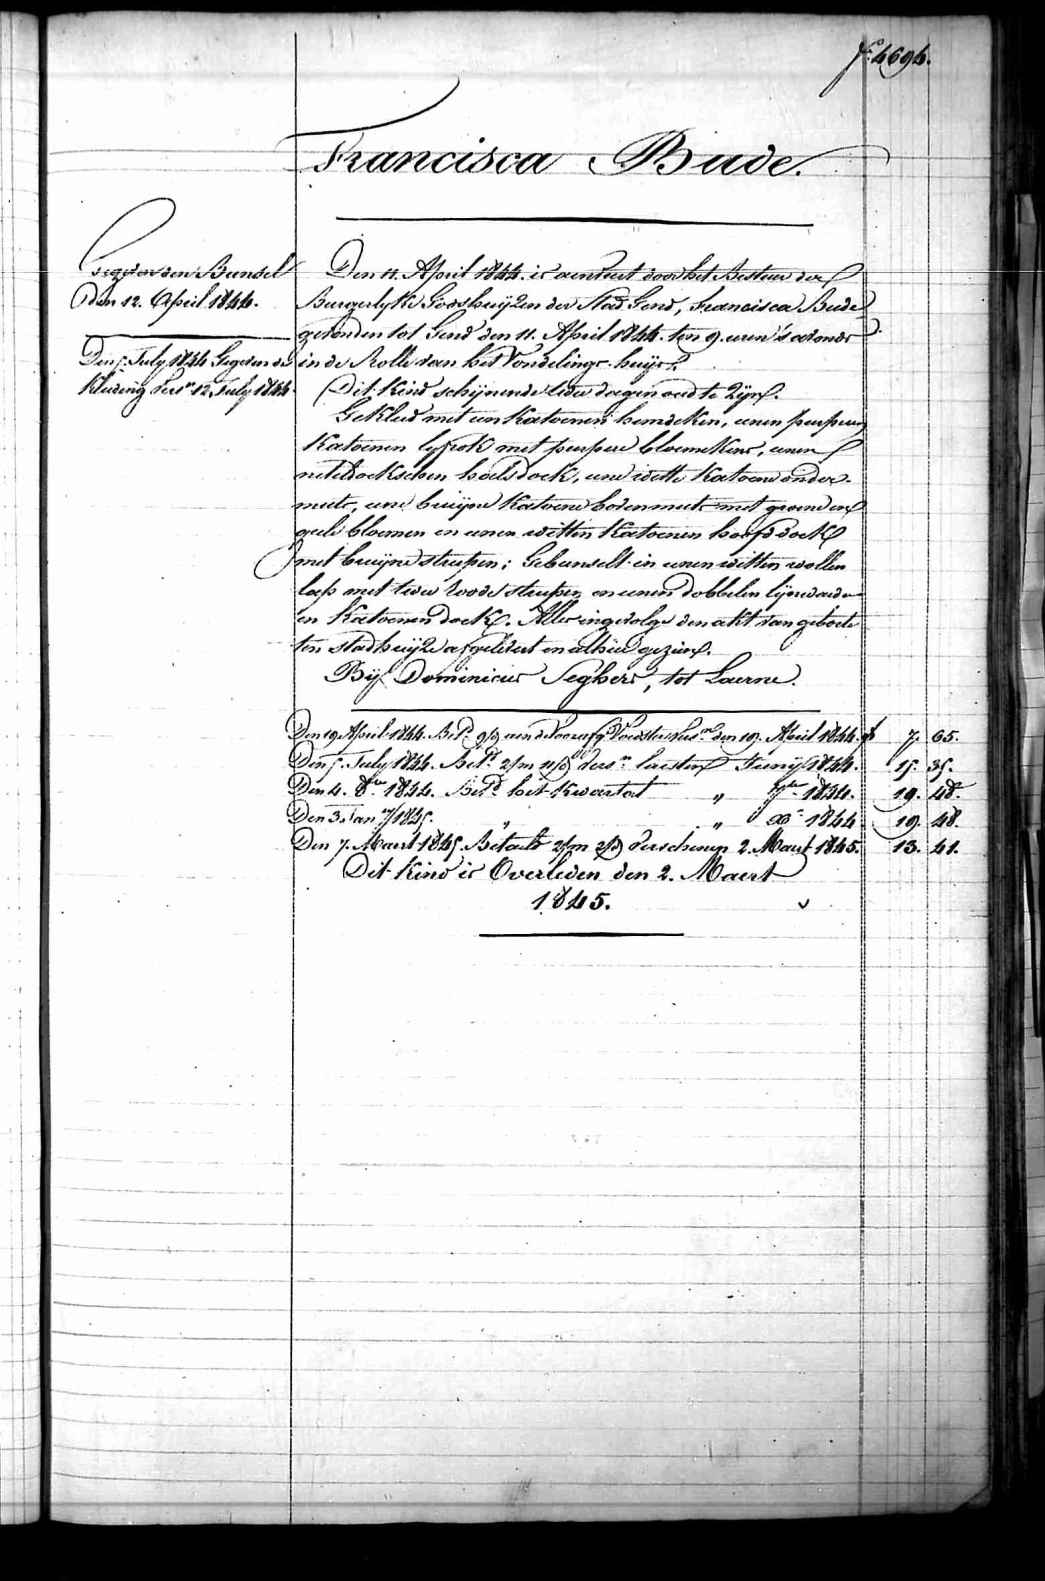 fo. 4694.
Francisca Bude.
Gegeven den Bunsel
den 12. April 1844.
Den 5. July 1844 Gegeven de
Kleeding vers.n 12. July 1844.
Den 11. April 1844. is aenveert door het Bestuer der
Burgerlyke Godshuijzen der Stad Gend, Francisca Bude
gevonden tot Gend den 11. April 1844. ten 9. uren 's avonds
in de Rolle van het Vondelings-huijs.
Dit Kind schijnende twee dagen oud te Zijn.
Gekleed met een Katoenen hemdeken, eenen purpuren
Katoenen lyfrok met purpere bloemekens, eenen
neteldoekschen halsdoek, eene witte Katoene onder-
muts, eene bruijne Katoene bovenmuts met groene en
geele bloemen en eenen witten Katoenen hoofddoek
met bruijne streepen; Gebunselt in eenen witten wollen
lap met twee roode streepen en eenen dobbelen lijnwaeden
en Katoenen doek. Alles ingevolge den akt van geboorte
ten Stadhuijze afgelevert en alhier gezien.
Bij Dominicus Seghers, tot Laerne.
Den 19 April 1844. Bet.d aen de Voorafg. Voedster vers.n den 19. April 1844. f 7. 65.
Den 5. July 1844. Bet.d 2/m 11/d vers.n laesten Junij 1844. 15. 35.
Den 4. 8ber 1844. Bet.d het Kwartael " 7ber 1844. 19. 48.
Den 3. Jan.ry 1845. " " Xber 1844. 19. 48.
Den 7. Maert 1845. Betaelt 2/m 2/d verschenen 2. Maert 1845. 13. 41.
Dit Kind is Overleden den 2. Maert
1845.